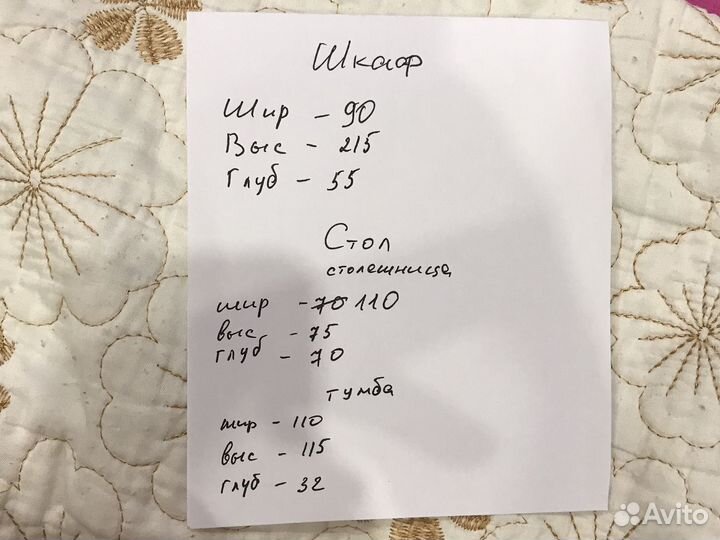 Шкаф
Шир - 90
Выс - 215
Глуб - 55
Стол
столешница
шир - 70 110
выс - 75
глуб - 70
тумба
шир - 110
выс - 115
глуб - 32
Avito